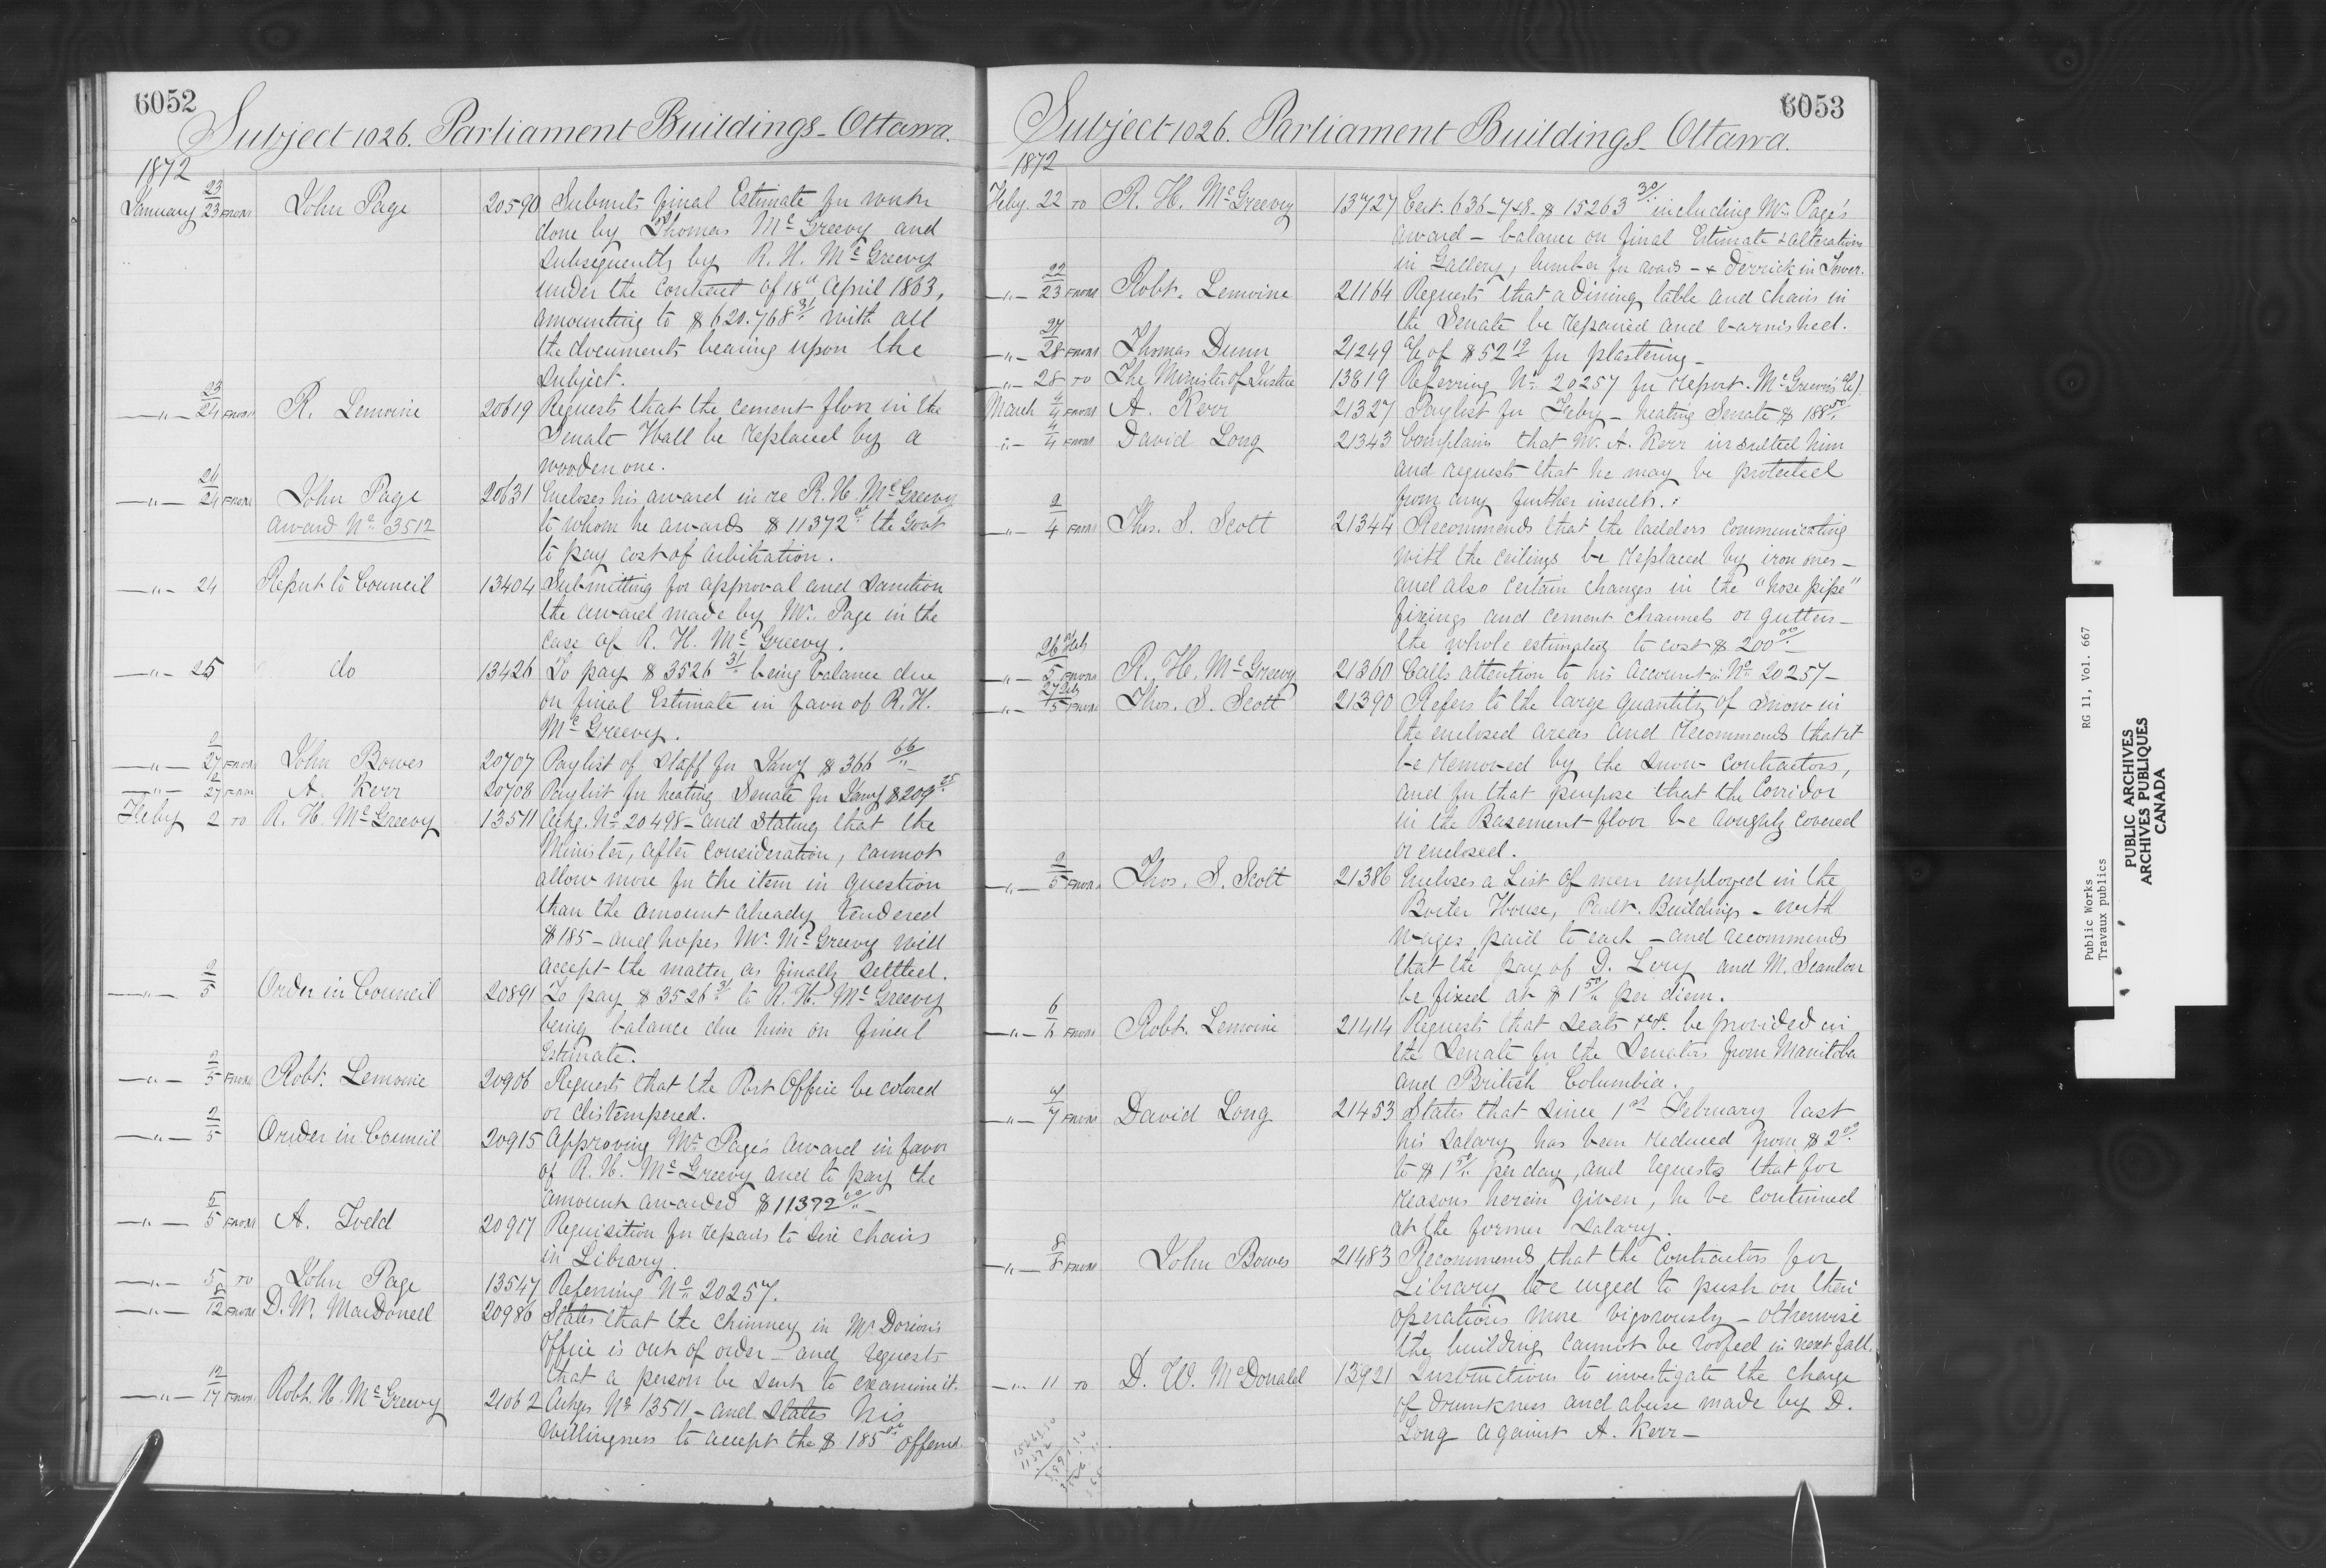 6052
Subject 1026. Parliament Buildings - Ottawa.
1872
January 23/23 FROM John Page 20590 Submits final Estimate for work
done by Thomas McGreevy and
subsequently by R. H. McGreevy
under the Contract of 18th April 1863,
amounting to $620.768 31 with all
the documents bearing upon the
subject.
—"— 23/24 FROM R. Lemoine 20619 Requests that the cement floor in the
Senate Hall be replaced by a
wooden one.
—"— 24/24 FROM John Page 20631 Encloses his award in re R. H. McGreevy
Award No. 3512 to whom he awards $11372 00 the Govt
to pay cost of arbitration.
—"— 24 Report to Council 13404 Submitting for approval and sanction
the award made by Mr. Page in the
case of R. H. McGreevy.
—"— 25 do 13426 To pay $3526 31/" being balance due
on final Estimate in favor of R. H.
McGreevy.
—"— 2/27 FROM John Bowes 20707 Paylist of staff for Jany $366 66/"
—"— 2/27 FROM A. Kerr 20708 Paylist for heating Senate for Jany $209 25
Feby 2 TO R. H. McGreevy 13511 Ackg. No. 20498 - and stating that the
Minister, after consideration, cannot
allow more for the item in question
than the amount already tendered
$185 - and hopes Mr. McGreevy will
accept the matter as finally settled.
—"— 2/5 Order in Council 20891 To pay $3526 31 to R. H. McGreevy
being balance due him on final
Estimate.
—"— 2/5 FROM Robt. Lemoine 20906 Requests that the Post Office be colored
or distempered.
—"— 2/5 Order in Council 20915 Approving Mr. Page's award in favor
of R. H. McGreevy and to pay the
amount awarded $11372 00/" -
—"— 5/5 FROM A. Todd 20917 Requisition for repairs to six chairs
in Library.
—"— 5 TO John Page 13547 Referring No. 20257.
—"— 8/12 FROM D. W. MacDonell 20986 States that the chimney in Mr Dorion's
Office is out of order - and requests
that a person be sent to examine it.
—"— 12/17 FROM Robt. H. McGreevy 21062 Ackges No. 13511 - and states his
willingness to accept the $185 00 offered
6053
Subject 1026. Parliament Buildings - Ottawa.
1872
Feby. 22 TO R. H. McGreevy 13727 Cert. 636 - 748 - $15263 30/" including Mr. Page's
award - balance on final Estimate & alterations
in Gallery, lumber for roads - & Derrick in Tower.
—"— 22/23 FROM Robt. Lemoine 21164 Requests that a Dining table and chairs in
the Senate be repaired and varnished.
—"— 27/28 FROM Thomas Dunn 21249 a/c of $52 19 for plastering -
—"— 28 TO The Minister of Justice 13819 Referring No. 20257 for report. McGreevy's a/c)
March 4/4 FROM A. Kerr 21327 Paylist for Feby - heating Senate $188 50/"
—"— 4/4 FROM David Long 21343 Complains that Mr. A. Kerr insulted him
and requests that he may be protected
from any further insults.
—"— 2/4 FROM Thos. S. Scott 21344 Recommends that the ladders communicating
with the ceilings be replaced by iron ones -
and also certain changes in the "hose pipe"
fixings and cement channels or gutters -
the whole estimated to cost $200 00/"
—"— 26 Feb/5 FROM R. H. McGreevy 21360 Calls attention to his Account in No. 20257 -
—"— 27 Feb/5 FROM Thos. S. Scott 21390 Refers to the large quantity of snow in
the enclosed areas and recommends that it
be removed by the snow contractors,
and for that purpose that the Corridor
in the Basement floor be roughly covered
or enclosed.
—"— 2/5 FROM Thos. S. Scott 21386 Encloses a List of men employed in the
Boiler House, Parlt. Buildings - with
wages paid to each - and recommends
that the pay of D. Levy and M. Scanlon
be fixed at $1 50/" per diem.
—"— 6/6 FROM Robt. Lemoine 21414 Requests that seats &c &c. be provided in
the Senate for the Senators from Manitoba
and British Columbia.
—"— 7/7 FROM David Long 21453 States that since 1st February last
his salary has been reduced from $2 00
to $1 50/" per day, and requests that for
reasons herein given, he be continued
at the former salary.
—"— 8/8 FROM John Bowes 21483 Recommends that the Contractors for
Library be urged to push on their
operations more vigorously - otherwise
the building cannot be roofed in next fall.
—"— 11 TO D. W. McDonald 13921 Instructions to investigate the charge
of drunkness and abuse made by D.
Long against A. Kerr -
Public Works RG 11, Vol. 667
Travaux publics
PUBLIC ARCHIVES
ARCHIVES PUBLIQUES
CANADA